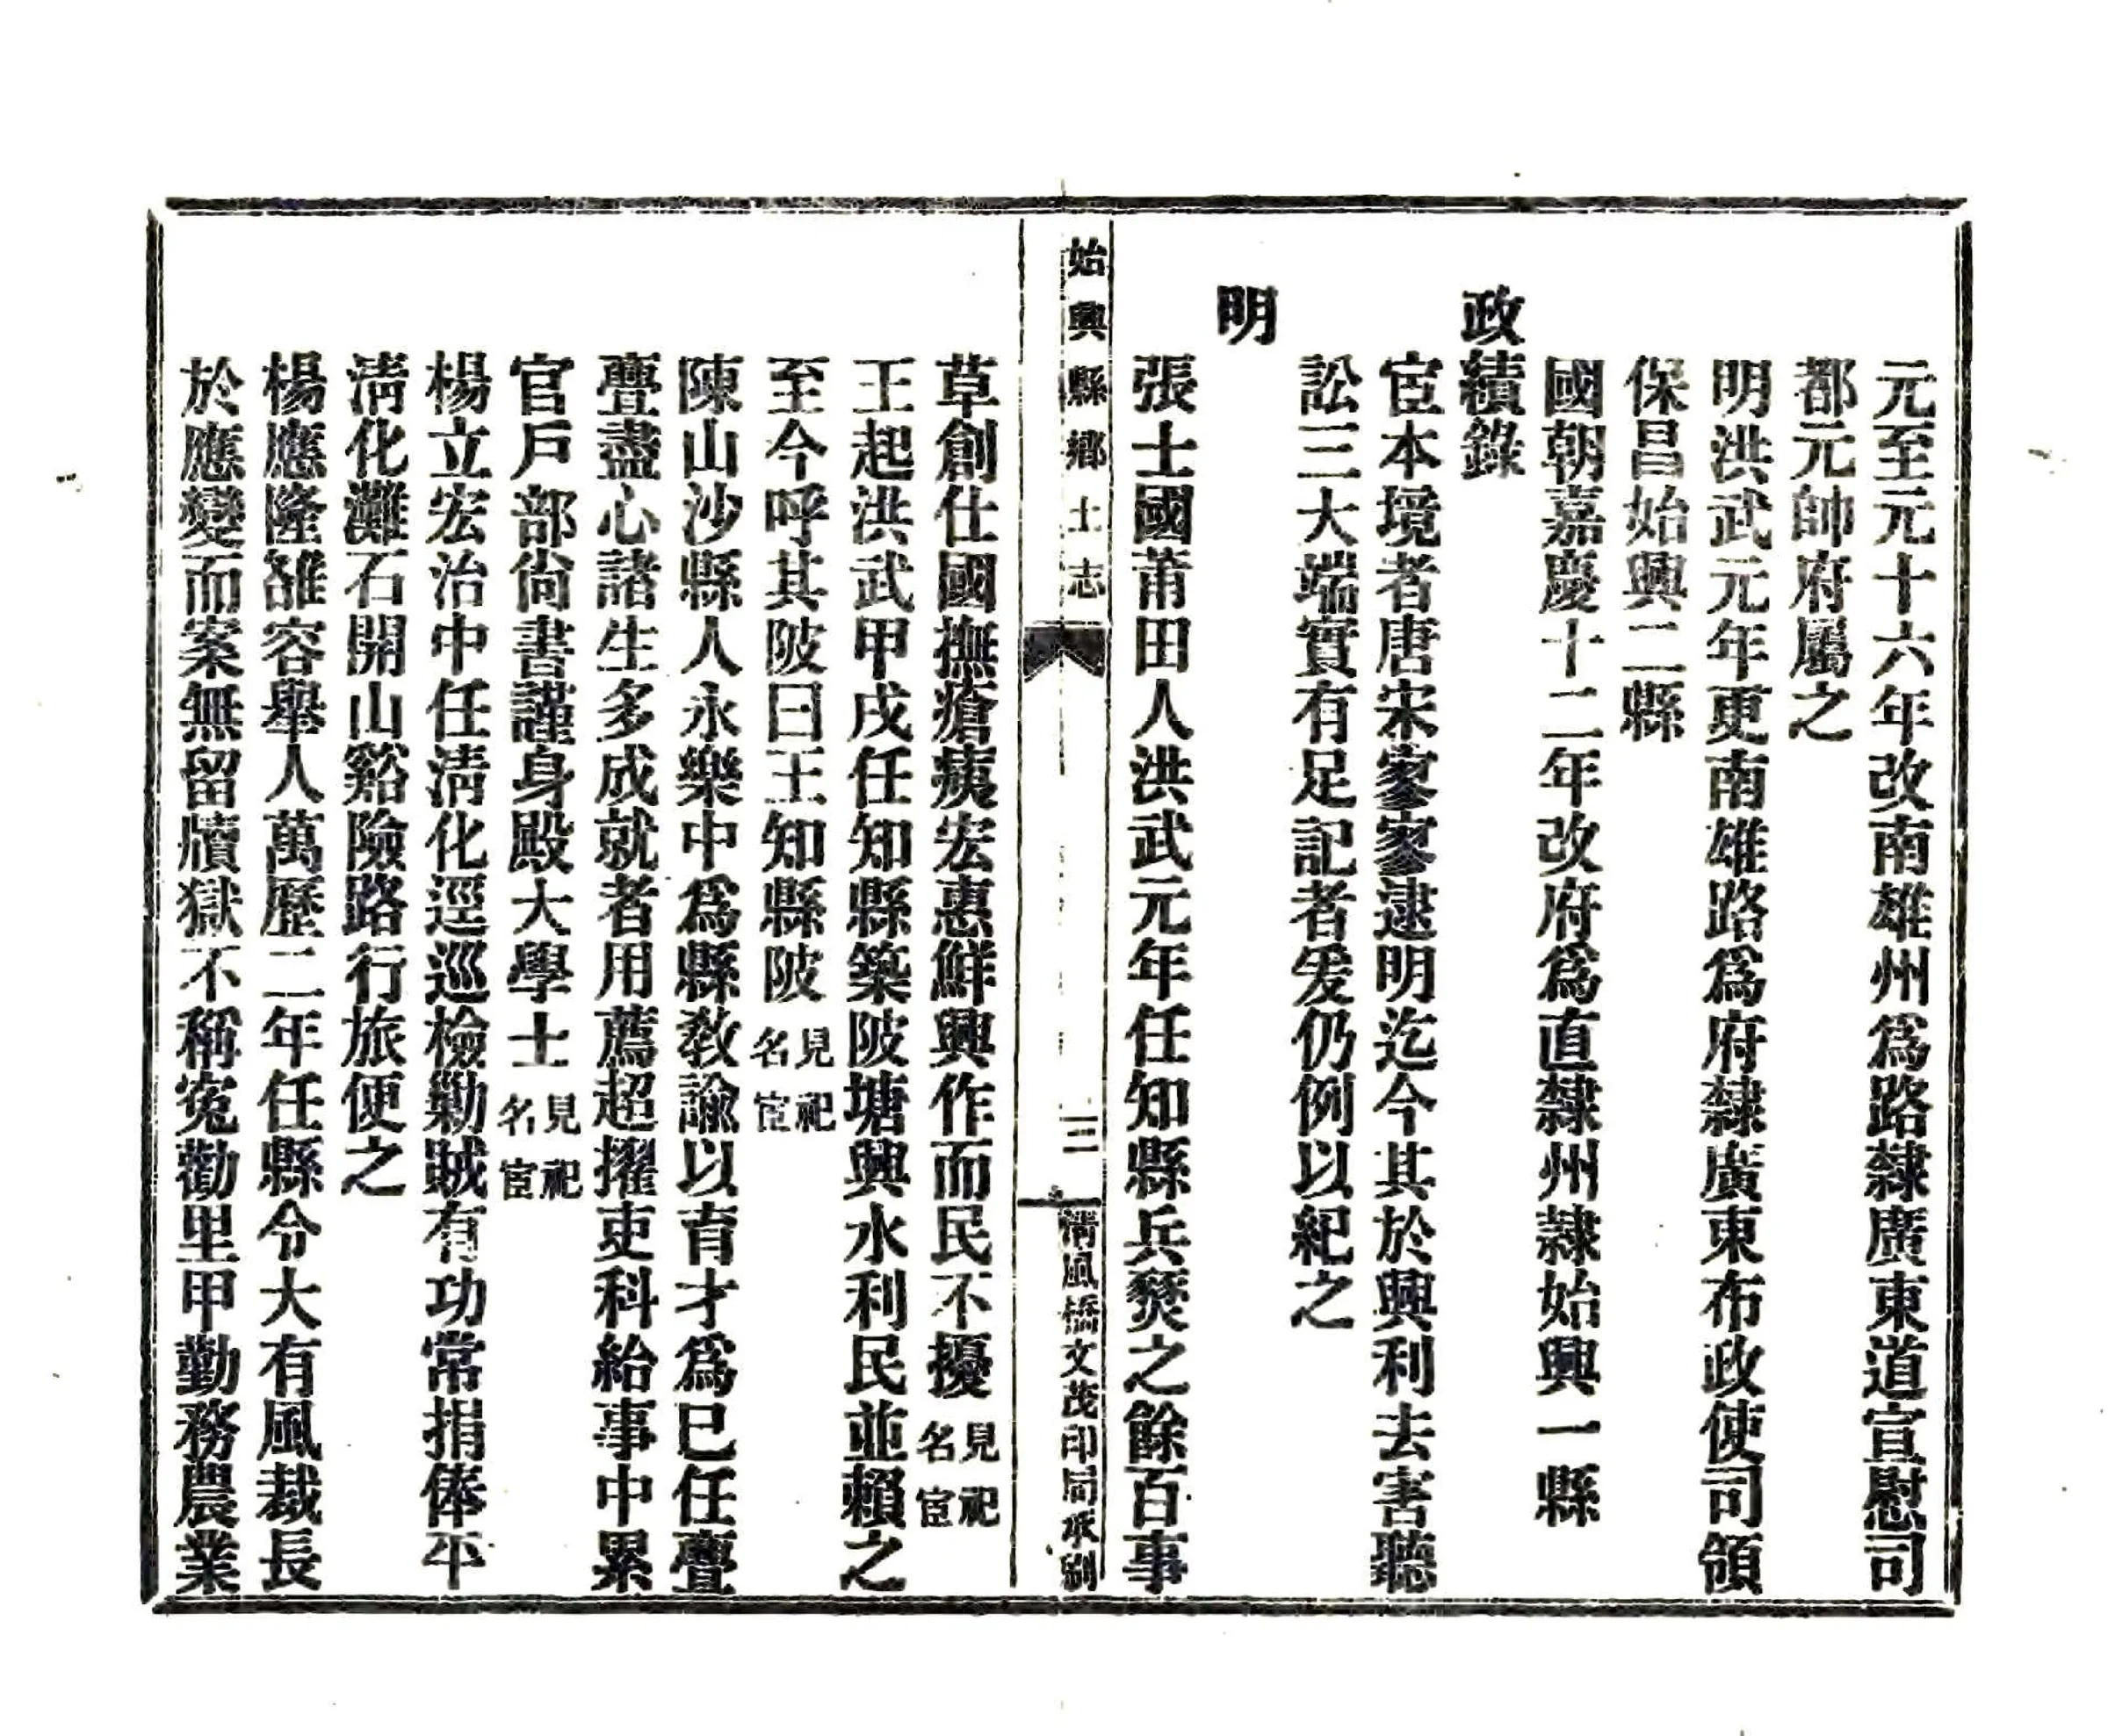 元至元十六年改南雄州爲路隸廣東道宣慰司
都元帥府屬之
明洪武元年更南雄路爲府隸廣東布政使司領
保昌始興二縣
國朝嘉慶十二年改府爲直隸州隸始興一縣
政績錄
宦本境者唐宋寥寥逮明迄今其於興利去害聽
訟三大端實有足記者爰仍例以紀之
明
張士國莆田人洪武元年任知縣兵燹之餘百事
始興縣鄉土志
三
清風橋文茂印局承刷
草創仕國撫瘡痍宏惠鮮興作而民不擾見祀名宦
王起洪武甲戌任知縣築陂塘興水利民並賴之
至今呼其陂曰王知縣陂見祀名宦
陳山沙縣人永樂中爲縣敎諭以育才爲已任亹
亹盡心諸生多成就者用薦超擢吏科給事中累
官戶部尙書謹身殿大學士見祀名宦
楊立宏治中任淸化逕巡檢勦賊有功常捐俸平
淸化灘石開山谿險路行旅便之
楊應隆雒容舉人萬歷二年任縣令大有風裁長
於應變而案無留牘獄不稱寃勸里甲勤務農業